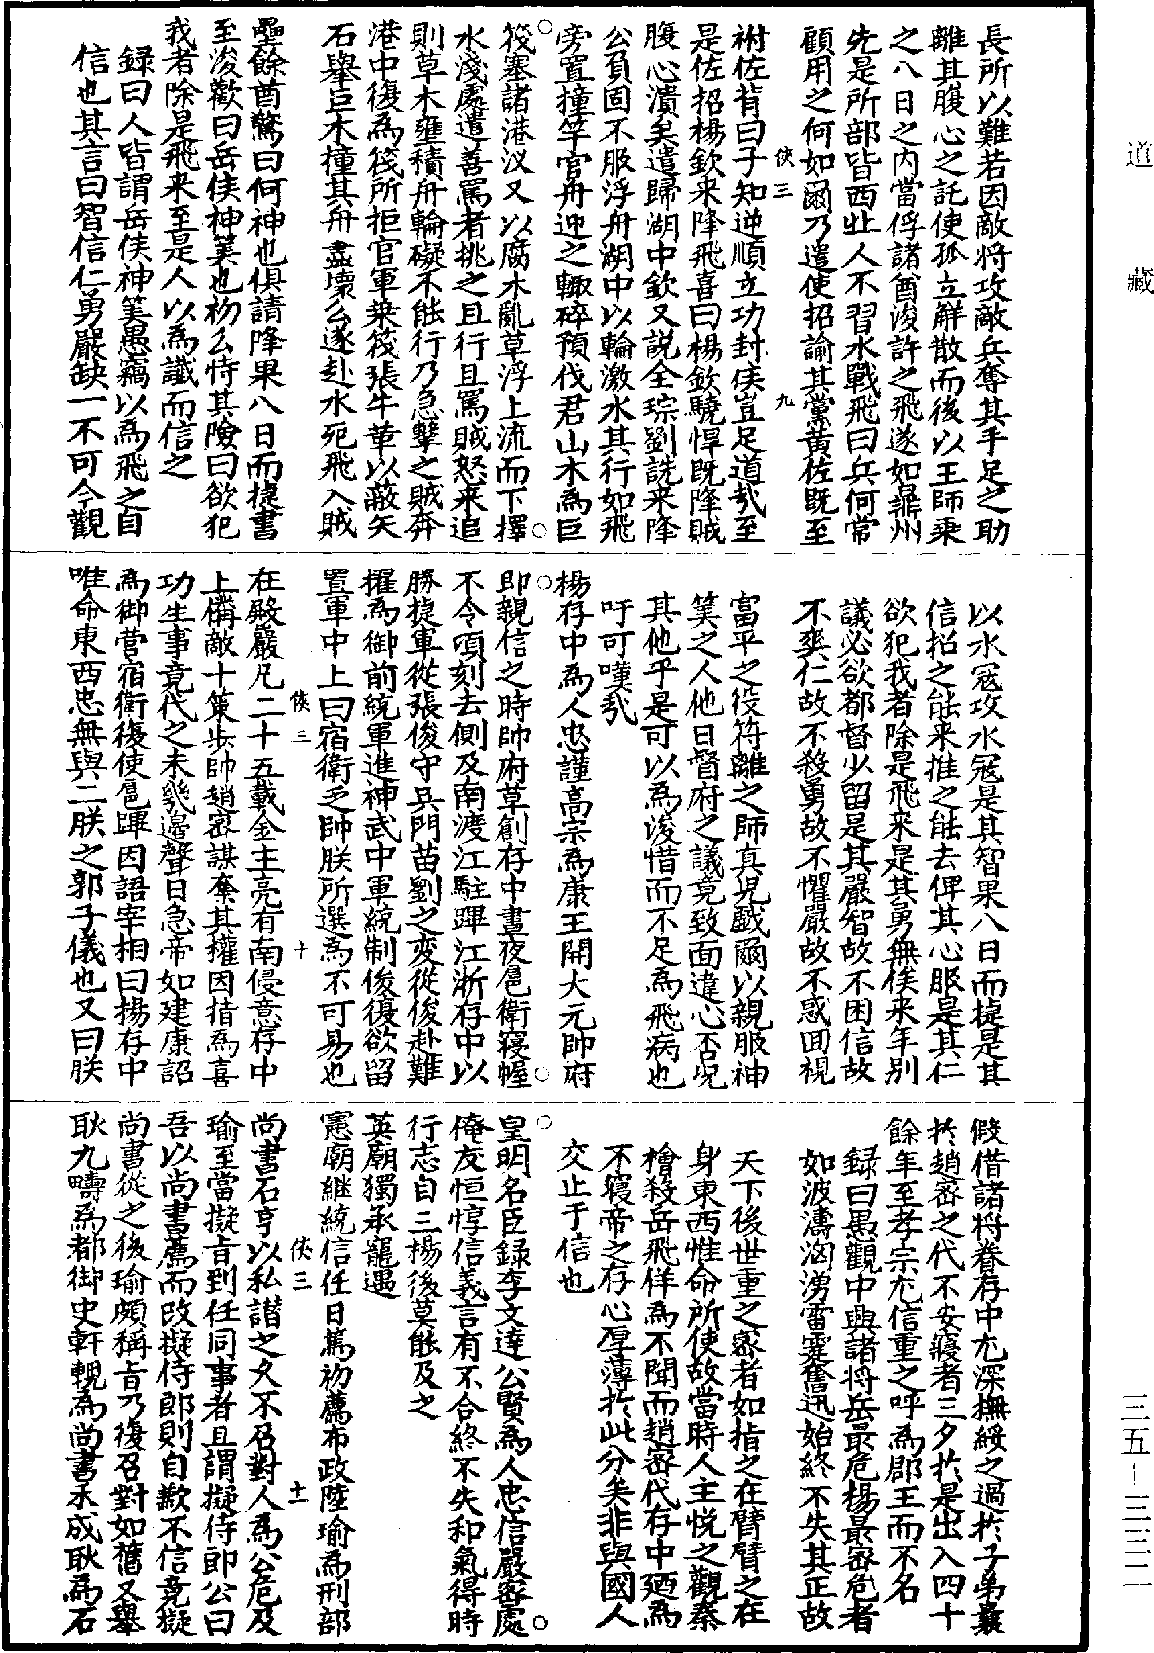 道藏
三五—三三二
長所以難若因敵將攻敵兵奪其手足之助
離其腹心之託使孤立觧散而後以王師乘
之八日之内當俘諸酋浚許之飛遂如鼎州
先是所部皆西北人不習水戰飛曰兵何常
顧用之何如爾乃遣使招諭其黨黄佐既至
俠三
九
祔佐背曰子知逆順立功封侯豈足道㢤至
是佐招楊欽来降飛喜曰楊欽驍悍既降賊
腹心潰矣遣歸湖中欽又説全琮劉詵来降
公負固不服浮舟湖中以輪激水其行如飛
旁置撞竿官舟迎之輙碎預伐君山木為巨
筏塞諸港汊又以腐木亂草浮上流而下擇
水淺處遣善罵者挑之且行且罵賊怒来追
則草木壅積舟輪礙不能行乃急擊之賊奔
港中復為筏所拒官軍乗筏張牛革以蔽矢
石舉巨木撞其舟盡壞么遂赴水死飛入賊
壘餘酋驚曰何神也俱請降果八日而捷書
至浚歎曰岳侯神筭也初么恃其險曰欲犯
我者除是飛来至是人以為讖而信之
録曰人皆謂岳侯神筭愚竊以為飛之自
信也其言曰智信仁勇嚴缺一不可今觀
以水冦攻水冦是其智果八日而捷是其
信招之能来推之能去俾其心服是其仁
欲犯我者除是飛来是其勇無俟来年别
議必欲都督少留是其嚴智故不困信故
不爽仁故不殺勇故不懼嚴故不惑囬視
富平之役符離之師真兒戲爾以親服神
筭之人他日督府之議竟致面違心否况
其他乎是可以為浚惜而不足為飛病也
吁可嘆㢤
楊存中為人忠謹高宗為康王開大元帥府
即親信之時帥府草創存中晝夜扈衛寢幄
不令頃刻去側及南渡江駐蹕江浙存中以
勝捷軍從張俊守吳門苗劉之变從俊赴難
擢為御前統軍進神武中軍統制俊復欲留
置軍中上曰宿衛乏帥朕所選為不可易也
俠三
十
在殿嚴凡二十五載金主亮有南侵意存中
上備敵十策步帥趙密謀奪其權因指為喜
功生事竟代之未幾邉聲日急帝如建康詔
為御營宿衛復使扈蹕因語宰相曰楊存中
唯命東西忠無與二朕之郭子儀也又曰朕
假借諸将眷存中尤深撫綏之過扵子弟曩
扵趙密之代不安寢者三夕扵是出入四十
餘年至孝宗尤信重之呼為郡王而不名
録曰愚觀中興諸将岳最危楊最密危者
如波濤洶湧雷霆奮迅始終不失其正故
天下後世重之密者如指之在臂臂之在
身東西惟命所使故當時人主悦之觀秦
檜殺岳飛佯為不聞而趙密代存中廼為
不寢帝之存心厚薄扵此分矣非與國人
交止于信也
皇明名臣録李文達公賢為人忠信嚴密處
俺友恒惇信義言有不合終不失和氣得時
行志自三楊後莫能及之
英廟獨承寵遇
憲廟継統信任日篤初薦布政陸瑜為刑部
俠三
十一
尚書石亨以私譖之久不召對人為公危及
瑜至當擬㫖到任同事者且謂擬侍郎公曰
吾以尚書薦而改擬侍郎則自欺不信竟擬
尚書從之後瑜頗稱㫖乃復召對如舊又舉
耿九疇為都御史軒輗為尚書禾成耿為石